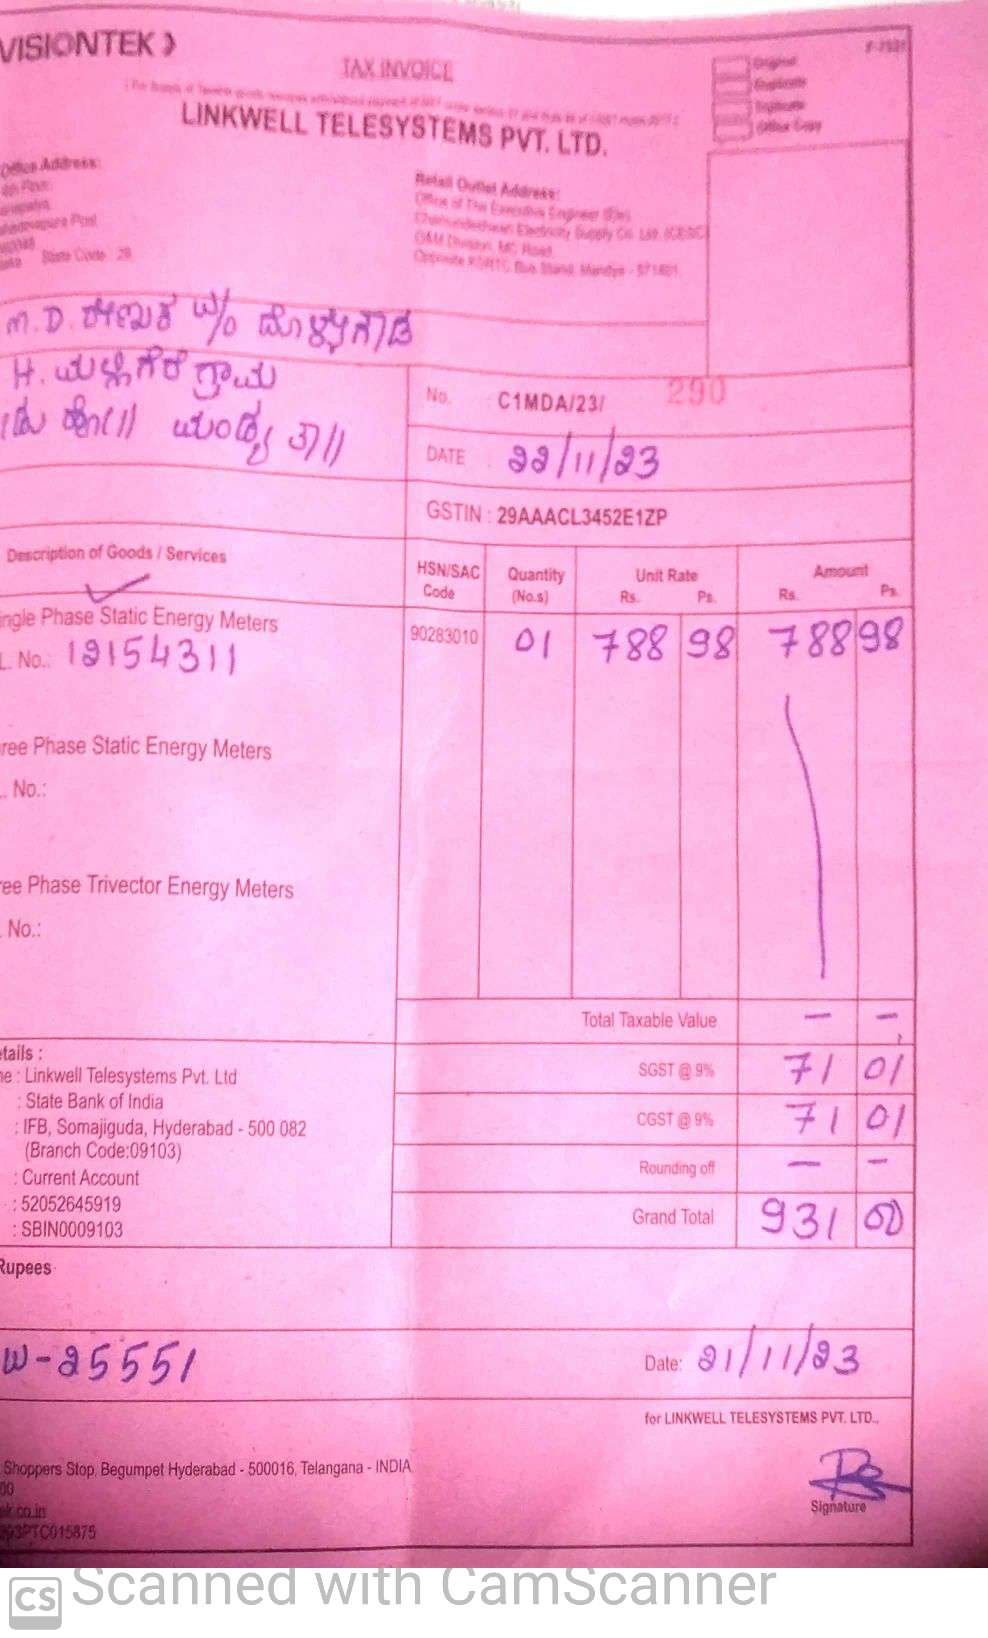 VISIONTEK
TAX INVOICE
LINKWELL TELESYSTEMS PVT. LTD.
Original
Duplicate
Triplicate
Office Copy
Office Address:
State Code 29
Retail Outlet Address:
Office of The Executive Engineer (Ele)
Chamundeshwari Electricity Supply Co. Ltd. (CESC)
O&M Division, MC Road,
Opposite KSRTC Bus Stand, Mandya - 571401.
M.D. ರೇಣುಕ W/o ದೊಳ್ಳೇಗೌಡ
H. ಮಲ್ಲಿಗೆರೆ ಗ್ರಾಮ
ಹೋ|| ಮಂಡ್ಯ ತಾ||
No. C1MDA/23/ 290
DATE 22/11/23
GSTIN : 29AAACL3452E1ZP
Description of Goods / Services
HSN/SAC Code
Quantity (No.s)
Unit Rate
Rs. Ps.
Amount
Rs. Ps.
ingle Phase Static Energy Meters
90283010 01 788 98 788 98
L. No.: 12154311
ree Phase Static Energy Meters
. No.:
ree Phase Trivector Energy Meters
. No.:
Total Taxable Value — —
etails :
ne : Linkwell Telesystems Pvt. Ltd
: State Bank of India
: IFB, Somajiguda, Hyderabad - 500 082
(Branch Code:09103)
: Current Account
: 52052645919
: SBIN0009103
SGST @ 9% 71 01
CGST @ 9% 71 01
Rounding off — —
Grand Total 931 00
Rupees
W-25551
Date: 21/11/23
for LINKWELL TELESYSTEMS PVT. LTD.,
Shoppers Stop, Begumpet Hyderabad - 500016, Telangana - INDIA
00
ek.co.in
993PTC015875
Signature
CS Scanned with CamScanner